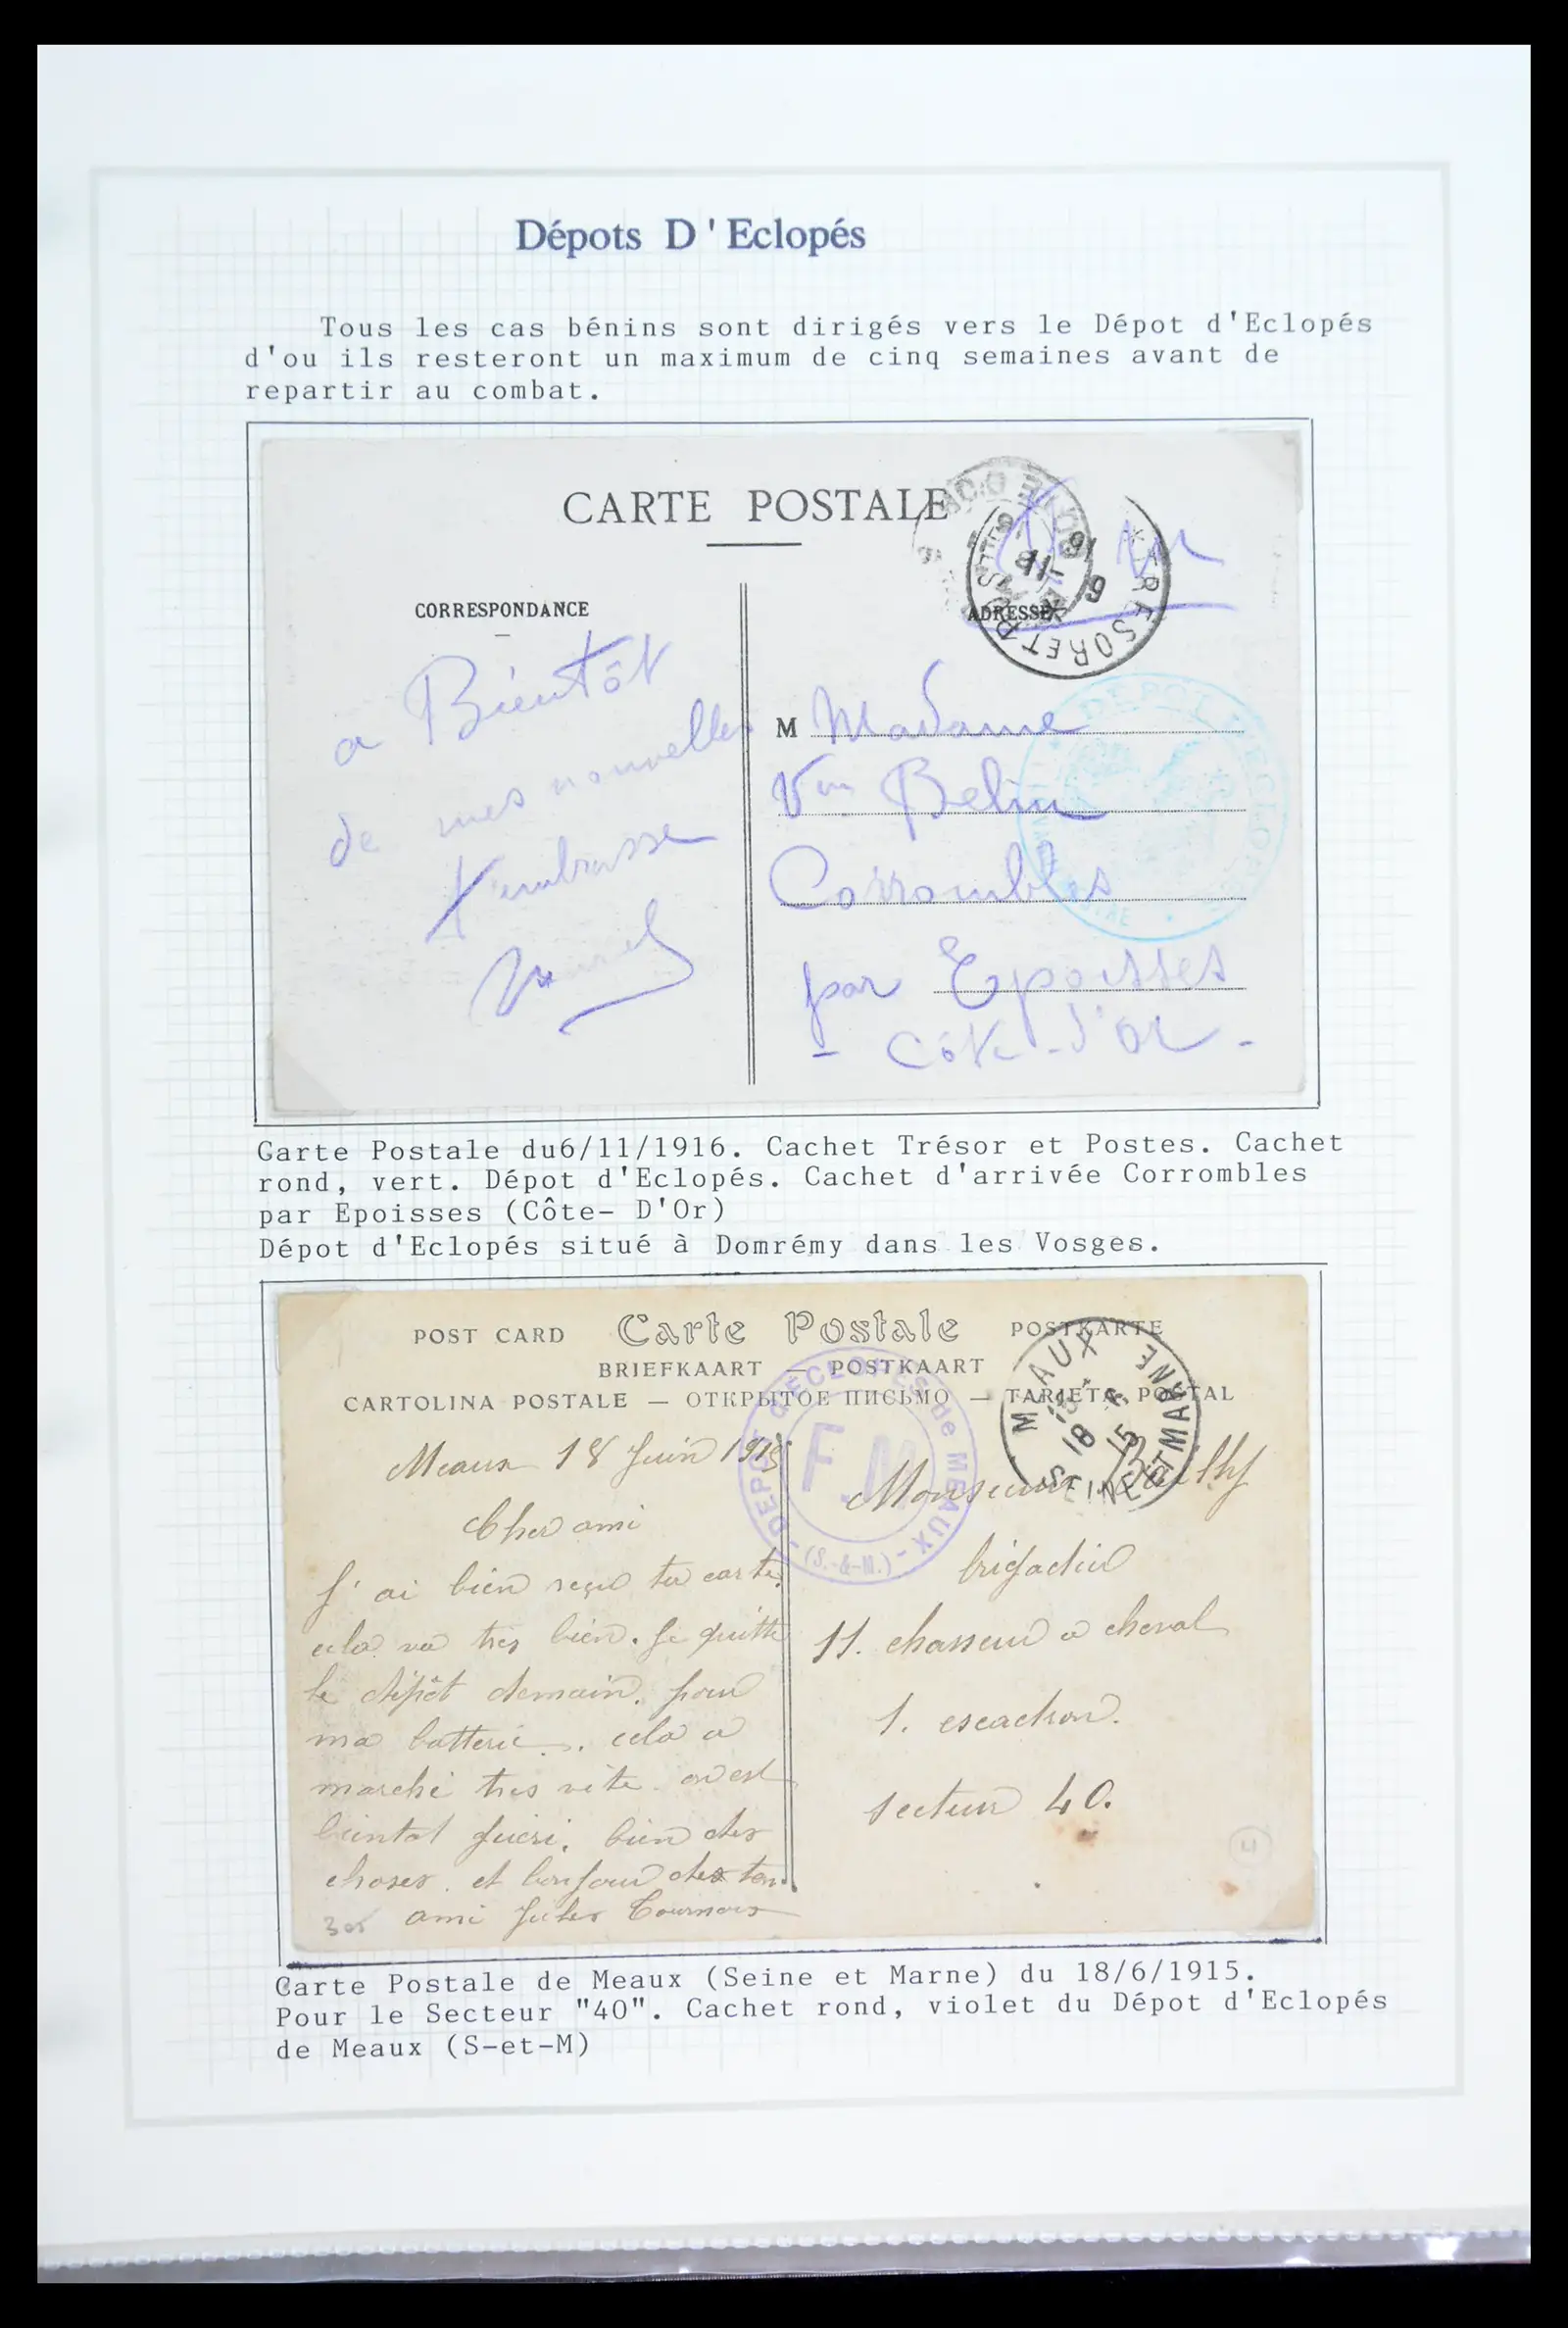 Dépots D'Eclopés
Tous les cas bénins sont dirigés vers le Dépot d'Eclopés
d'ou ils resteront un maximum de cinq semaines avant de
repartir au combat.
CARTE POSTALE
CORRESPONDANCE
ADRESSE
TRESOR ET POSTES
6 -11 16
COTE D'OR
a Bientôt
de mes nouvelles
t'embrasse
M Madame
Vve Belin
Corrombles
par Epoisses
- Côte-d'Or -
DÉPOT D'ECLOPÉS
Carte Postale du6/11/1916. Cachet Trésor et Postes. Cachet
rond, vert. Dépot d'Eclopés. Cachet d'arrivée Corrombles
par Epoisses (Côte- D'Or)
Dépot d'Eclopés situé à Domrémy dans les Vosges.
POST CARD Carte Postale POSTKARTE
BRIEFKAART — POSTKAART
CARTOLINA POSTALE — ОТКРЫТОЕ ПИСЬМО — TARJETA POSTAL
MEAUX SEINE ET MARNE
18 - 6 15
DEPOT d'ECLOPÉS de MEAUX - (S.-&-M.) -
F.M.
Meaux 18 Juin 1915
Cher ami
J'ai bien reçu ta carte.
cela va tres bien. Je quitte
le dépôt demain. pour
ma batterie. cela a
marché tres vite. on est
bientot guéri. bien des
choses. et bonjour de ton
ami Jules Tournois
305
Monsieur Bailly
brigadier
11. chasseur a cheval
1. escadron.
secteur 40.
4
Carte Postale de Meaux (Seine et Marne) du 18/6/1915.
Pour le Secteur "40". Cachet rond, violet du Dépot d'Eclopés
de Meaux (S-et-M)